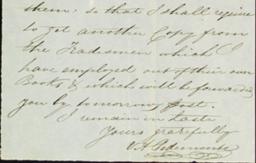 them; so that I shall require
to get another Copy from
the Tradesmen which I
have employed out of their own
Books & which will be forwarded
you by tomorrow post.
I remain in haste
Yours gratefully
V A